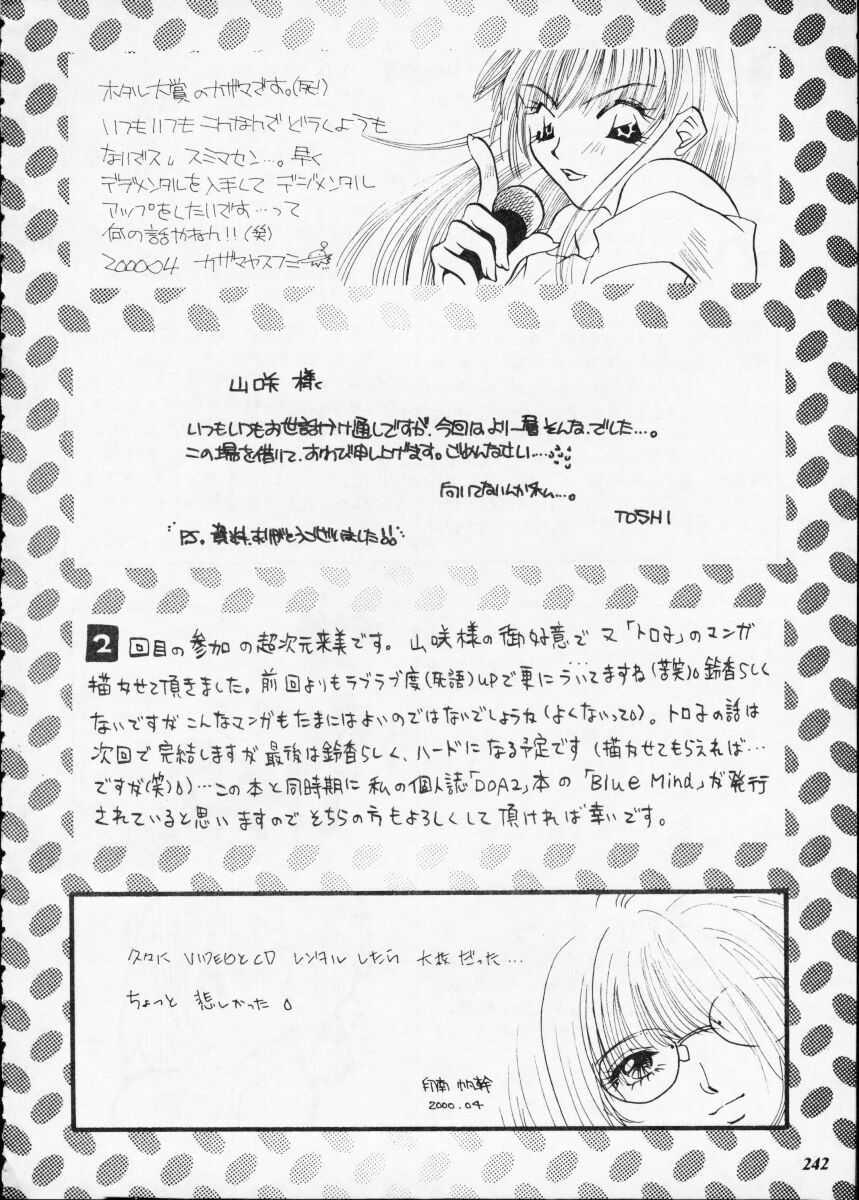 ホタル大賞のカザマです。(死)
いつもいつもこんなんでどうしようも
ないデス。スミマセン…。早く
デヂメンタルを入手して デヂメンタル
アップをしたいです…って
何の話かなれ!!(笑)
200004 カザマヤスフミ
山咲 様
いつもいつもお世話かけ通しですが、今回はより一層そんな、でした…。
この場を借りて、おわび申し上げます。ごめんなさい…
向いてないんかなぁ…。
TOSHI
P.S. 資料、ありがとうございました!!
2回目の参加の超次元来美です。山咲様の御好意で又「トロ子」のマンガ
描かせて頂きました。前回よりもラブラブ度(死語)UPで更にういてますね(苦笑)。鈴香らしく
ないですがこんなマンガもたまにはよいのではないでしょうね(よくないって)。トロ子の話は
次回で完結しますが最後は鈴香らしく、ハードになる予定です(描かせてもらえれば…
ですが(笑))…この本と同時期に私の個人誌「DOA2」本の「Blue Mind」が発行
されていると思いますのでそちらの方もよろしくして頂ければ幸いです。
久々に VIDEOとCD レンタルしたら 大枚だった…
ちょっと 悲しかった
印南 帆幹
2000.04
242